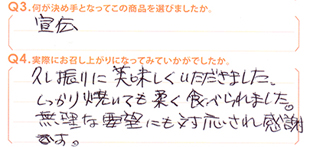 Q3.何が決め手となってこの商品を選びましたか。
宣伝
Q4.実際にお召し上がりになってみていかがでしたか。
久し振りに美味しくいただきました。
しっかり焼いても柔く食べられました。
無理な要望にも対応され感謝
です。